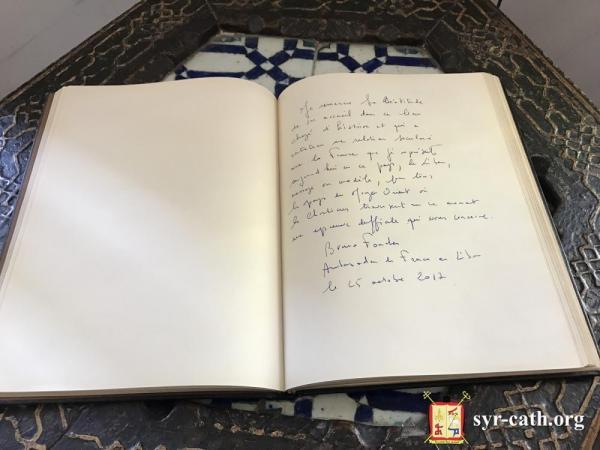 Je remercie Sa Béatitude
de son accueil dans ce lieu
chargé d'histoire et qui a
entretenu une relation séculaire
avec la France que je représente
aujourd'hui en ce pays, le Liban,
message ou modèle, bien
le pays en Moyen Orient où
les Chrétiens traversent en ce moment
une épreuve difficile qui nous concerne.
Bruno Foucher
Ambassadeur de France au Liban
le 25 octobre 2017
syr-cath.org